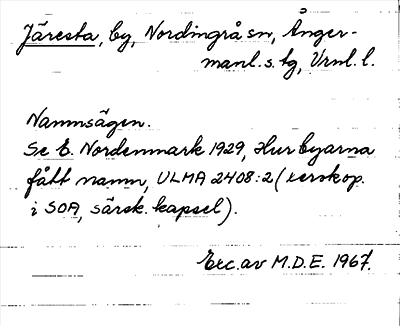 Järesta, by, Nordingrå sn, Ånger-
manl. s. tg, Vrnl. l.
Namnsägen.
Se E. Nordenmark 1929, Hur byarna
fått namn, ULMA 2408:2 (xerskop.
i SOA, särsk. kapsel).
Exc. av M.D.E. 1967.